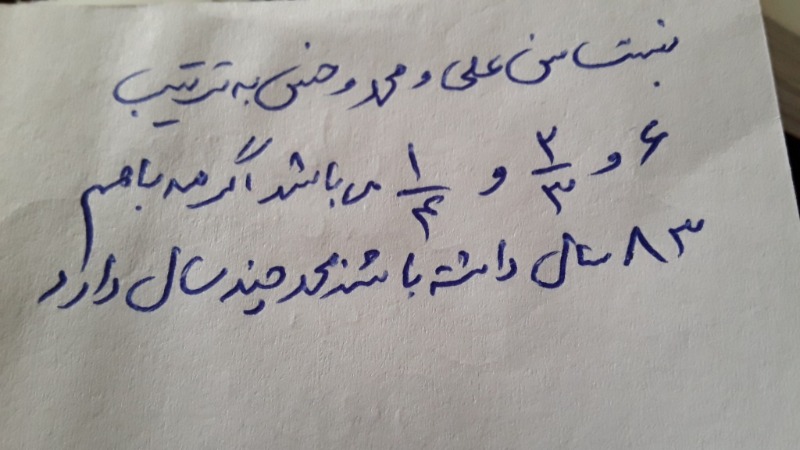 نسبت سن علی و محمد و حسن به ترتیب
۶ و ۲/۳ و ۱/۴ می باشد اگر سه باهم
۸۳ سال داشته باشند محمد چند سال دارد